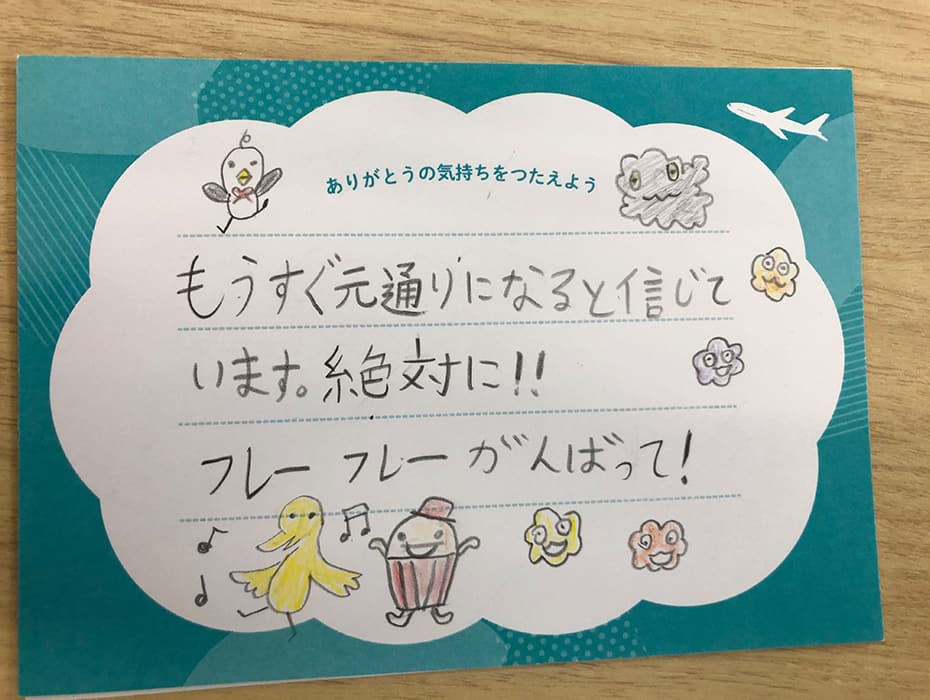 ありがとうの気持ちをつたえよう
もうすぐ元通りになると信じて
います。絶対に!!
フレー フレー がんばって!